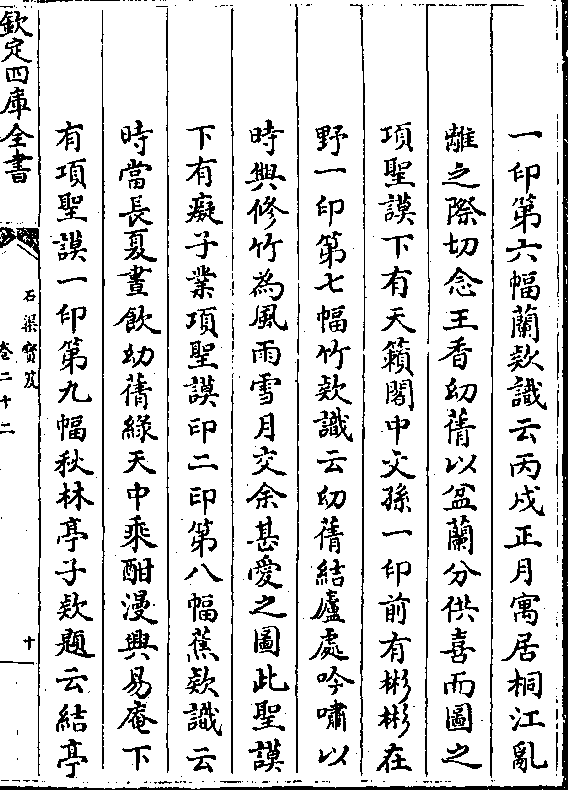 一印第六幅蘭欵識云丙戍正月寓居桐江亂
離之際切念王香幼蒨以盆蘭分供喜而圖之
項聖謨下有天籟閣中文孫一印前有彬彬在
野一印第七幅竹欵識云幼蒨結廬處吟嘯以
時興修竹為風雨雪月交余甚愛之圖此聖謨
下有癡子業項聖謨印二印第八幅蕉欵識云
時當長夏晝飲幼蒨緑天中乘酣漫興易庵下
有項聖謨一印第九幅秋林亭子欵題云結亭
欽定四庫全書
石渠寳笈
卷二十二
十